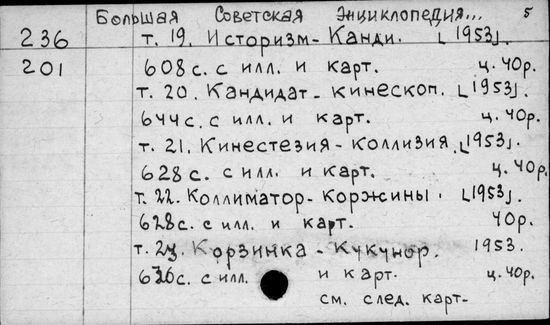 Большая Советская Энциклопедия... 5
236 т. 19. Историзм - Канди. [1953].
201 608 с. с илл. и карт. ц. 40р.
т. 20. Кандидат - кинескоп. [1953].
644 с. с илл. и карт. ц. 40р.
т. 21. Кинестезия - коллизия. [1953].
628 с. с илл. и карт. ц. 40р.
т. 22. Коллиматор - коржины. [1953].
628 с. с илл. и карт. 40р.
т. 23. Корзинка - Кукунор. 1953.
636 с. с илл. и карт. ц. 40р.
см. след. карт-